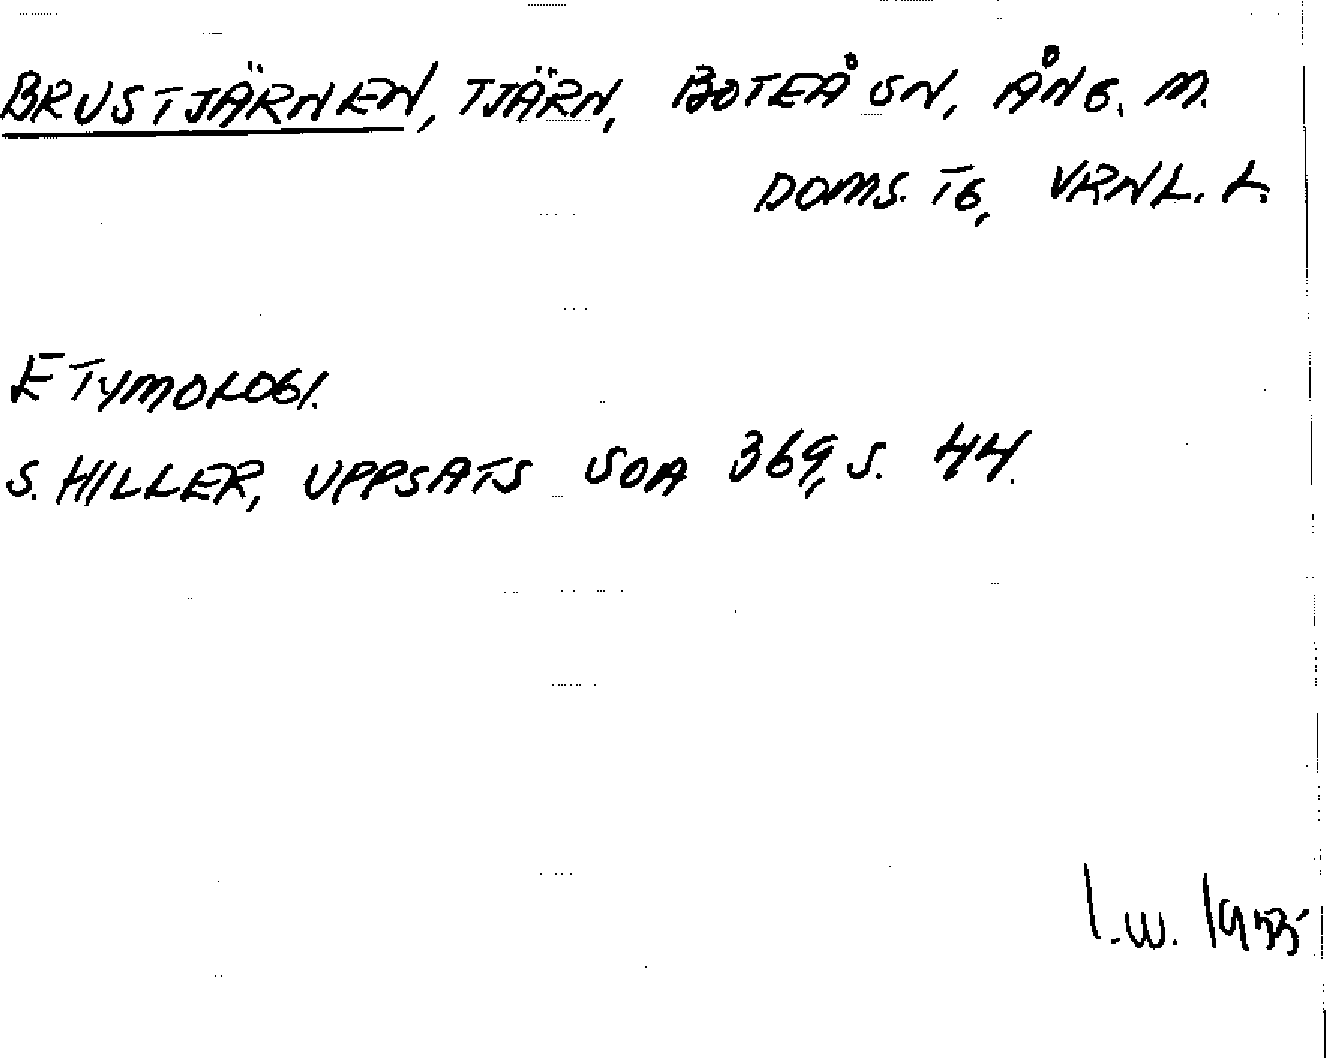 BRUSTJÄRNEN, TJÄRN, BOTEÅ SN, ÅNG. M.
DOMS. TG, VRNL. L.
ETYMOLOGI.
S. HILLER, UPPSATS SOA 369, S. 44.
I.W. 1955